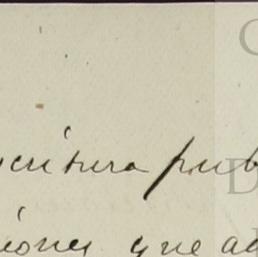 critura pub
iones que ad